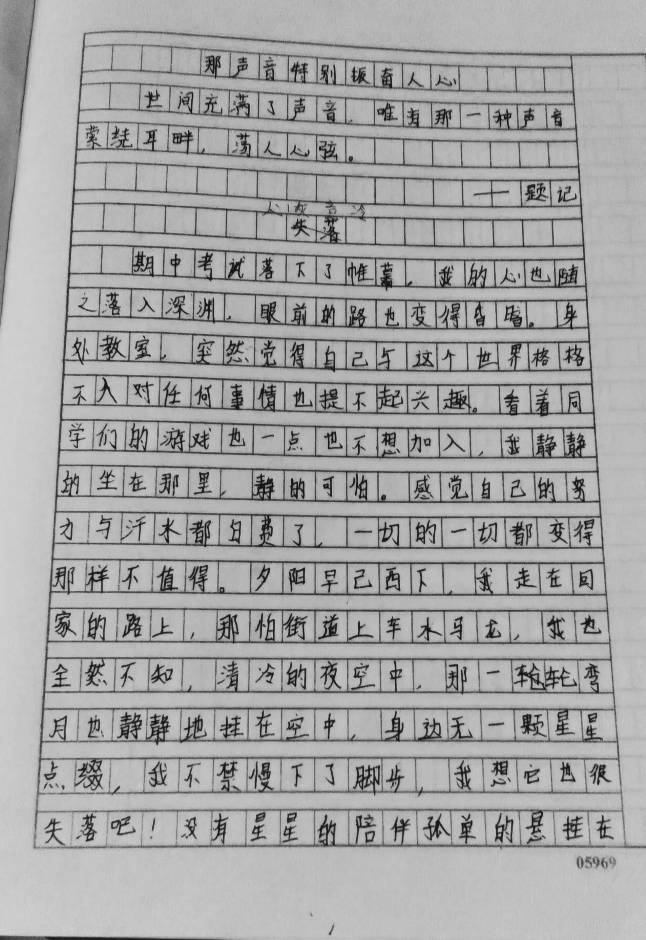 那声音特别振奋人心
世间充满了声音，唯有那一种声音
萦绕耳畔，荡人心弦。
——题记
人 意冷
失落
期中考试落下了帷幕，我的心也随
之落入深渊，眼前的路也变得昏暗。身
处教室，突然觉得自己与这个世界格格
不入对任何事情也提不起兴趣。看着同
学们的游戏也一点也不想加入，我静静
的坐在那里，静的可怕。感觉自己的努
力与汗水都白费了，一切的一切都变得
那样不值得。夕阳早已西下，我走在回
家的路上，那怕街道上车水马龙，我也
全然不知，清冷的夜空中，那一轮轮弯
月也静静地挂在空中，身边无一颗星星
点缀，我不禁慢下了脚步，我想它也很
失落吧！没有星星的陪伴孤单的悬挂在
05969
1